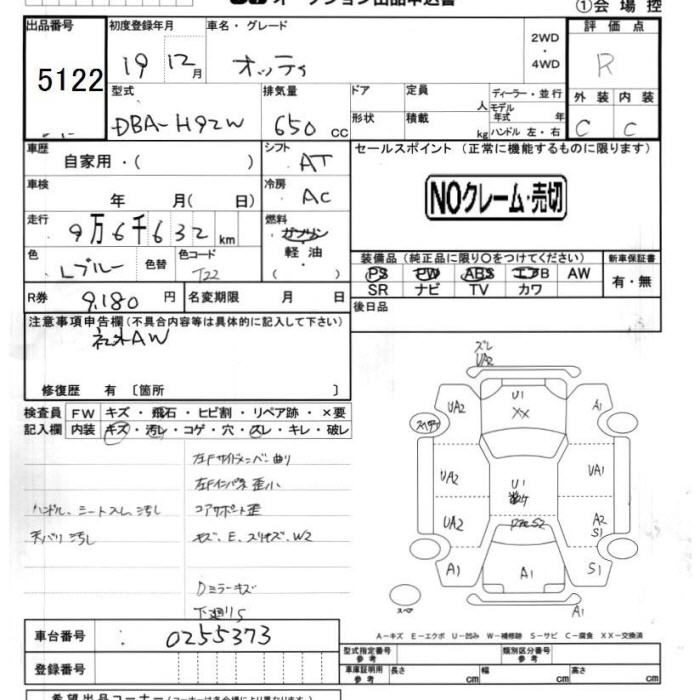 ①会場控
出品番号 初度登録年月 車名・グレード 2WD・4WD 評価点
5122 19 12月 オッティ R
型式 排気量 ドア 定員 人 ディーラー・並行 外装 内装
DBA-H92W 650cc 形状 積載 kg モデル年式 年 ハンドル 左・右 C C
車歴 自家用・( ) シフト AT セールスポイント (正常に機能するものに限ります)
車検 年 月( 日) 冷房 AC NOクレーム・売切
走行 9万6千632km 燃料 ガソリン・軽油・( )
色 Lブルー 色替 色コード T22
装備品 (純正品に限り○をつけてください) 新車保証書
PS PW ABS エアB AW 有・無
SR ナビ TV カワ
R券 9,180円 名変期限 月 日 後日品
注意事項申告欄 (不具合内容等は具体的に記入して下さい)
社外AW
修復歴 有 〔箇所 〕
検査員記入欄 FW キズ・飛石・ヒビ割・リペア跡・×要
内装 キズ・汚レ・コゲ・穴・スレ・キレ・破レ
左Fサイドメンバー曲り
左Fインパネ歪小
ハンドル、シートスレ、汚レ コアサポート歪
天バリ汚レ キズ、E、スリキズ、W2
Dミラーキズ
下廻りS
ズレ
UA2
UA2 U1 XX A1
UA2 U1 UA1
UA2 A2 S1
A1 A1 S1
スペア A1
A-キズ E-エクボ U-凹み W-補修跡 S-サビ C-腐食 XX-交換済
車台番号 : 0255373
型式指定番号 参考 類別区分番号 参考
登録番号 車庫証明用 参考 長さ cm 幅 cm 高さ cm
希望出品コーナー